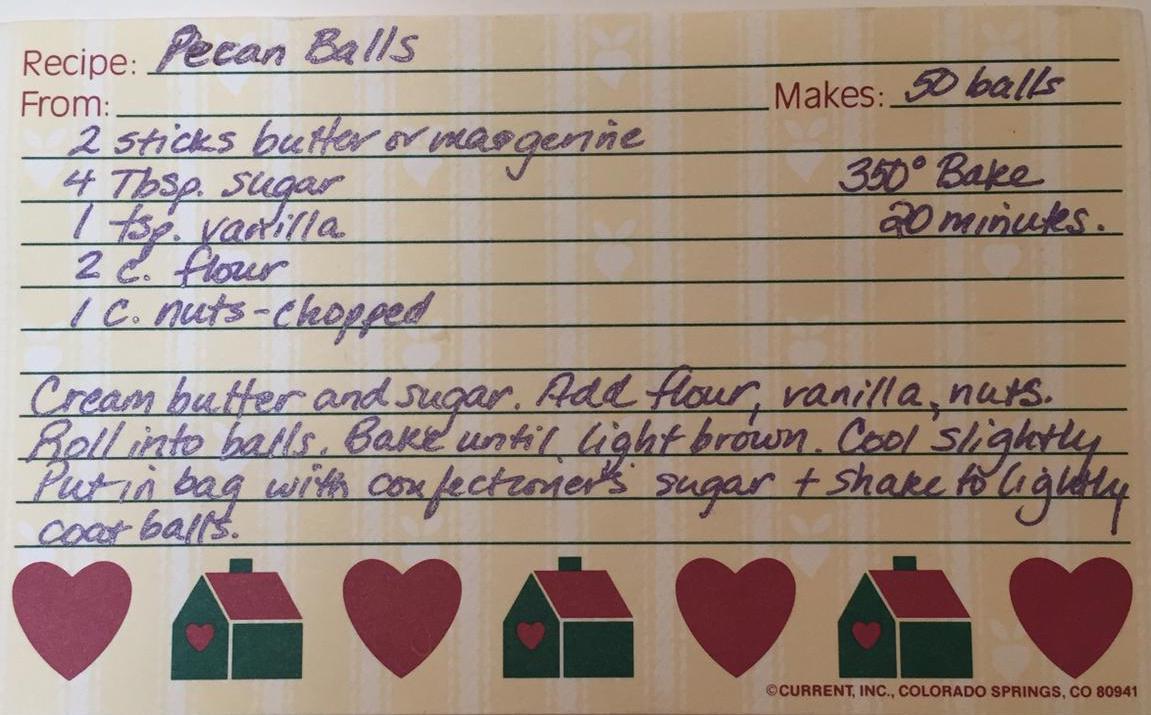 Recipe: Pecan Balls
From: Makes: 50 balls
2 sticks butter or masgerine
4 Tbsp. sugar 350° Bake
1 tsp. vanilla 20 minutes.
2 c. flour
1 C. nuts-chopped
Cream butter and sugar. Add flour, vanilla, nuts.
Roll into balls. Bake until light brown. Cool slightly
Put in bag with confectioner's sugar + shake to lightly
coat balls.
©CURRENT, INC., COLORADO SPRINGS, CO 80941